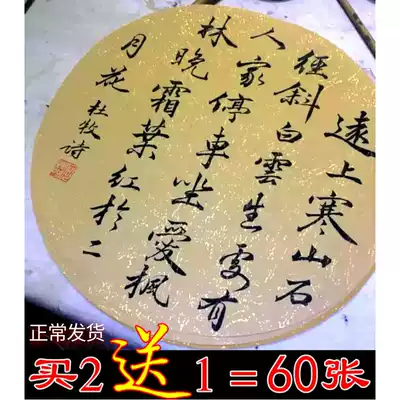 遠上寒山石
徑斜白雲生處有
人家停車坐愛楓
林晚霜葉紅於二
月花 杜牧詩
正常发货
买2送1=60张